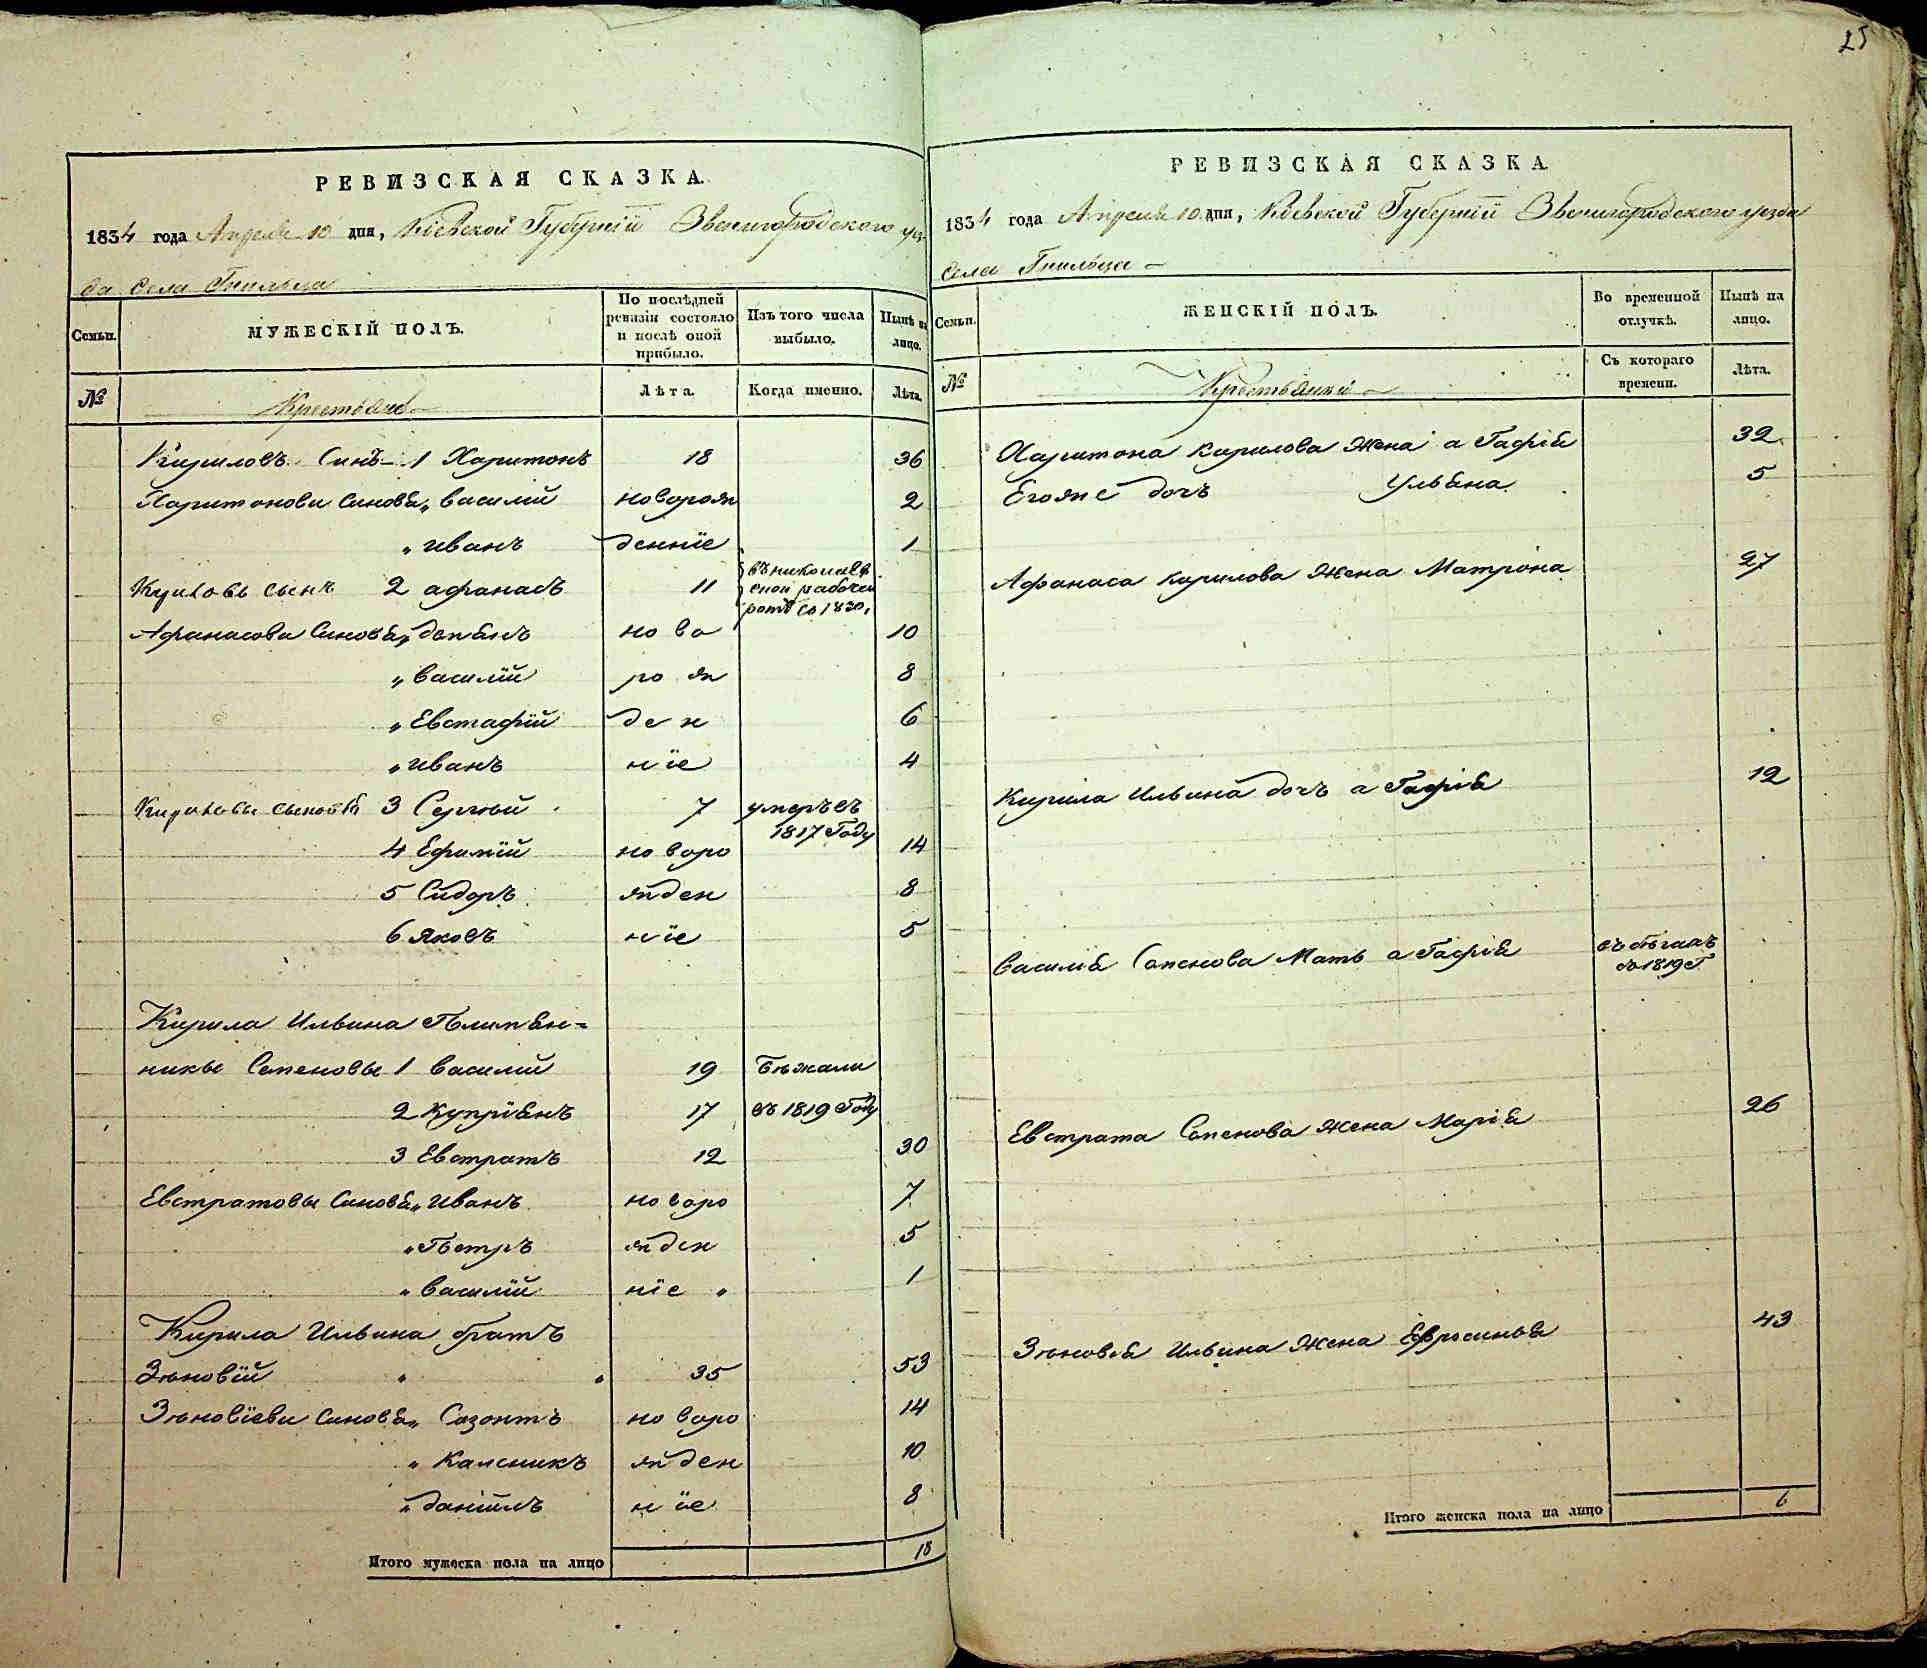 25
РЕВИЗСКАЯ СКАЗКА.
1834 года Апреля 10 дня, Кіевской Губерніи Звенигородского уез-
да села Гнильца
Семьи. МУЖЕСКІЙ ПОЛЪ. По послѣдней ревизіи состояло и послѣ оной прибыло. Изъ того числа выбыло. Нынѣ на лицо.
№ Крестьяне Лѣта. Когда именно. Лѣта.
Кириловъ Синъ 1 Харитонъ 18 36
Харитонови Синовя „ василій новорож 2
„ иванъ денніе 1
Кириловъ сынъ 2 афанасъ 11 въ николаев
ской рабочей
роте со 1830,
Афанасови Синовя „ демянъ ново 10
„ василій рож 8
„ Евстафій ден 6
„ иванъ ніе 4
Кириловы сыновя 3 Сергѣй 7 умеръ въ
1817 Году
4 Ефимій новоро 14
5 Сидоръ жден 8
6 яковъ ніе 5
Кирила Ильина Плимян=
никы Семеновы 1 василій 19 бѣжали
2 Купріянъ 17 въ 1819 Году
3 Евстратъ 12 30
Евстратовы Синовя „ иванъ новоро 7
„ Петръ жден 5
„ василій ніе „ 1
Кирила Ильина братъ
Зѣновій „ „ 35 53
Зѣновіеви Синовя „ Созонтъ новоро 14
„ Калсникъ жден 10
„ даніилъ ніе 8
Итого мужеска пола на лицо 18
РЕВИЗСКАЯ СКАЗКА
1834 года Апреля 10 дня, Кіевской Губерніи Звенигородского уезда
села Гнильца
Семьи. ЖЕНСКІЙ ПОЛЪ. Во временной отлучкѣ. Нынѣ на лицо.
№ Крестьянки Съ котораго времени. Лѣта.
Харитона Кирилова жена агафія 32
Егоже дочъ Ульяна 5
Афанаса Кирилова жена Матрона 27
Кирила Ильина дочъ агафія 12
василія Семенова Мать агафія въ бѣгахъ
со 1819 Г.
Евстрата Семенова жена Марія 26
Зѣновія Ильина жена Ефросинья 43
Итого женска пола на лицо 6